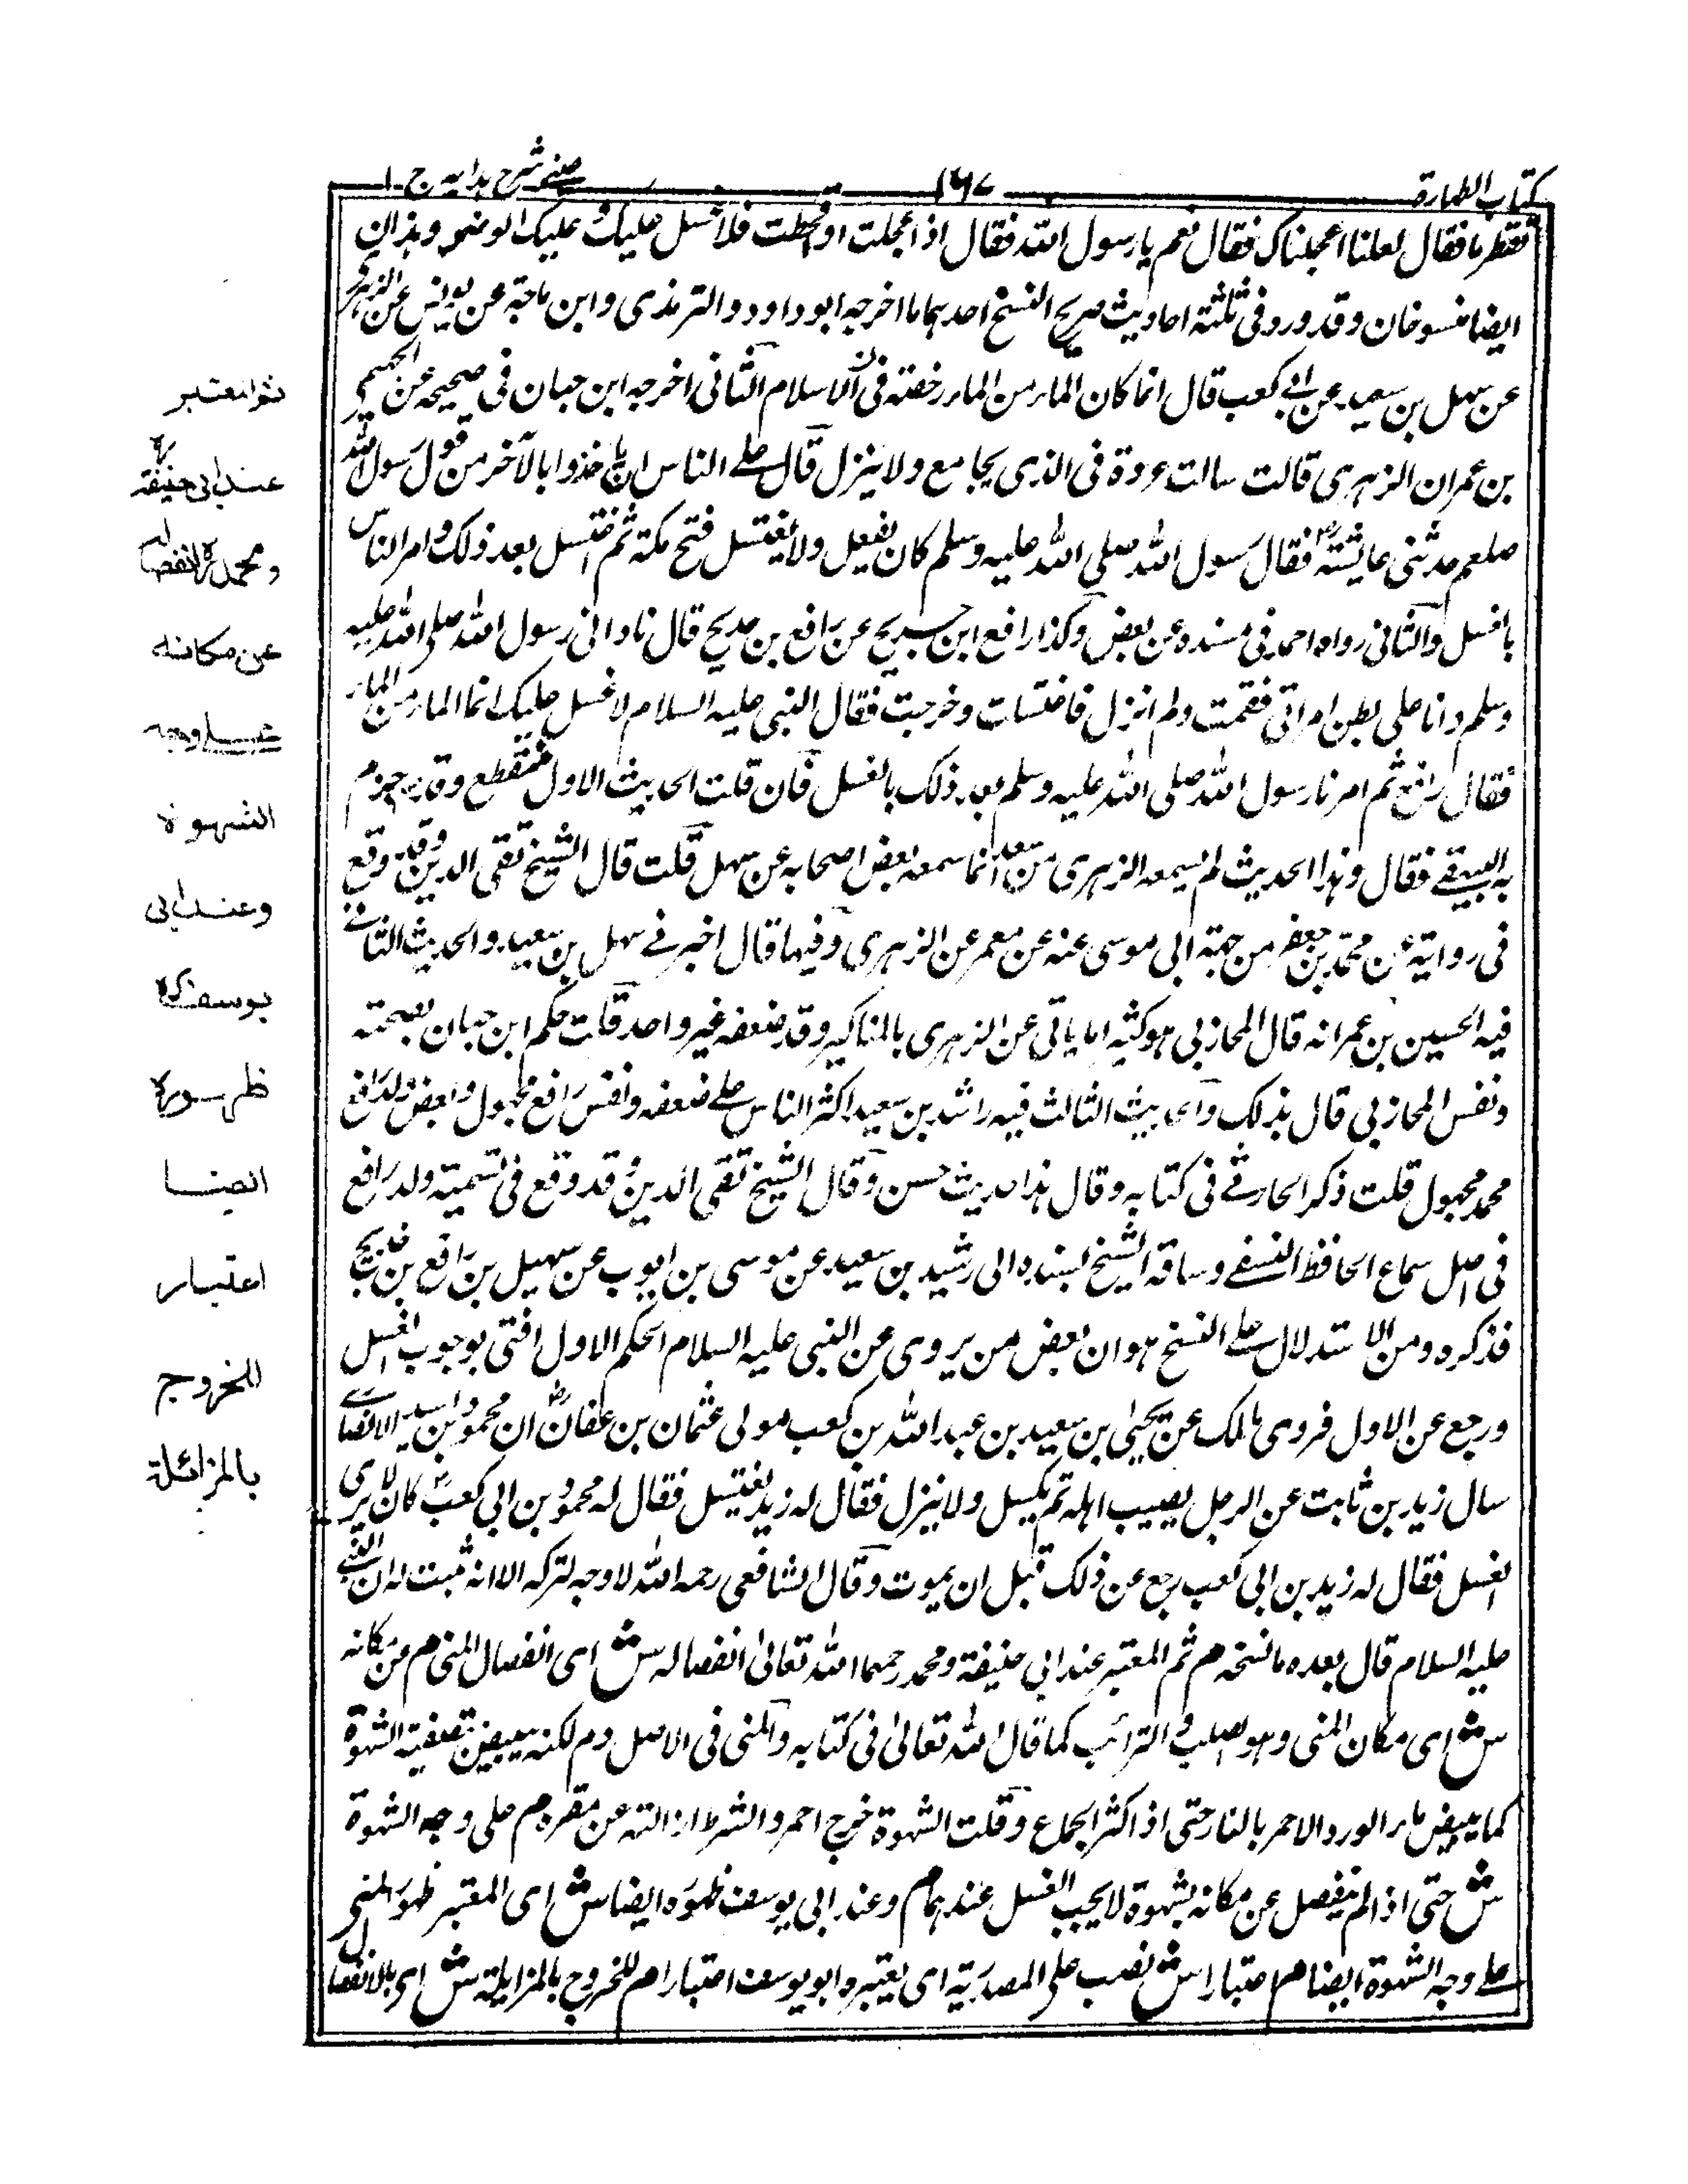 كتاب الطهارة
١٦٧
عينى شرح هدايه ج ١
تقطر ما فقال لعلنا اعجلناك فقال نعم يا رسول الله فقال اذا عجلت او قحطت فلا غسل عليك و عليك الوضوء وهذان
ايضا منسوخان وقد ورد فى ثلثة احاديث صريح النسخ احدهما ما اخرجه ابو داود والترمذى وابن ماجة عن يونس عن الزهرى
عن سهل بن سعيد عن ابى كعب قال انما كان الماء من الماء رخصة فى الاسلام الثانى اخرجه ابن حبان فى صحيحه عن الحسين
بن عمران الزهرى قالت سالت عروة فى الذى يجامع ولا ينزل قال على الناس ان ياخذوا بالآخر من قول رسول الله
صلعم حدثنى عايشة فقال رسول الله صلى الله عليه وسلم كان يفعل ولا يغتسل فتح مكة ثم اغتسل بعد ذلك وامر الناس
بالغسل والثانى رواه احمد فى مسنده عن بعض وكذا رافع ابن خديج عن رافع بن خديج قال نادانى رسول الله صلى الله عليه
وسلم وانا على بطن امراتى فقمت ولم انزل فاغتسلت وخرجت فقال النبى عليه السلام لا غسل عليك انما الماء من الماء
فقال رافع ثم امرنا رسول الله صلى الله عليه وسلم بعد ذلك بالغسل فان قلت الحديث الاول منقطع وقد جزم
به البيهقى فقال وهذا الحديث لم يسمعه الزهرى من سعد انما سمعه بعض اصحابه عن سهل قلت قال الشيخ تقى الدين وقد وقع
فى رواية عن محمد بن جعفر من جهة ابى موسى عنه عن معمر عن الزهرى وفيها قال اخبرنى سهل بن سعيد والحديث الثانى
فيه الحسين بن عمرانه قال المحازبى هو كثيرا ما ياتى عن الزهرى بالمناكير وقد ضعفه غير واحد قلت حكم ابن حبان بصحته
ونفس المحازبى قال بذلك والحديث الثالث فيه راشد بن سعيد اكثر الناس على ضعفه ونفس رافع مجهول وبعض ولد رافع
محمد مجهول قلت ذكره الحارثى فى كتابه وقال هذا حديث حسن وقال الشيخ تقى الدين قد وقع فى تسمية ولد رافع
فى اصل سماع الحافظ النسفى وساقه الشيخ بسنده الى رشيد بن سعيد عن موسى بن ايوب عن سهيل بن رافع بن خديج
فذكره ومن الاستدلال على النسخ هو ان بعض من يروى عن النبى عليه السلام الحكم الاول افتى بوجوب الغسل
ورجع عن الاول فروى مالك عن يحيىٰ بن سعيد بن عبد الله بن كعب مولى عثمان بن عفان ان محمود بن لبيد الانصارى
سال زيد بن ثابت عن الرجل يصيب اهله ثم يكسل ولا ينزل فقال له زيد يغتسل فقال له محمود بن ابى كعب كان لا يرى
الغسل فقال له زيد بن ابى كعب رجع عن ذلك قبل ان يموت وقال الشافعى رحمه الله لا وجه لتركه الا انه ثبت له ان النبى
عليه السلام قال بعده ما نسخه م ثم المعتبر عند ابى حنيفة ومحمد رحمهما الله تعالىٰ انفصاله ش اى انفصال المنى م من مكانه
ش اى مكان المنى وهو الصلب والترائب كما قال الله تعالىٰ فى كتابه والمنى فى الاصل دم لكنه يبيض بتصفية الشهوة
كما يبيض ماء الورد الاحمر بالنار حتى اذا اكثر الجماع وقلت الشهوة خرج احمر والشرط ازالته عن مقره م على وجه الشهوة
ش حتى اذا لم ينفصل عن مكانه بشهوة لا يجب الغسل عندهما م وعند ابى يوسف ظهوره ايضا ش اى المعتبر ظهور المنى
على وجه الشهوة ايضا م اعتبارا ش نصب على المصدرية اى يعتبره ابو يوسف اعتبارا م للخروج بالمزايلة ش اى بالانفصال
ثم المعتبر
عند ابى حنيفة
ومحمد انفصاله
عن مكانه
على وجه
الشهوة
وعند ابى
يوسف
ظهوره
ايضا
اعتبار
للخروج
بالمزائلة